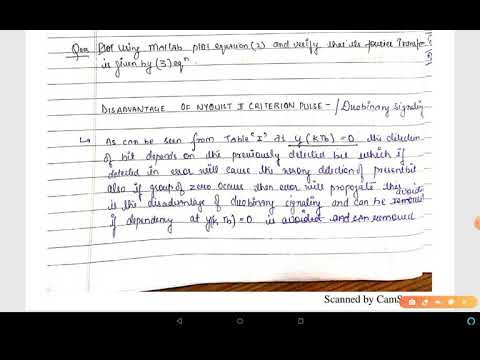 Que Plot using Matlab plot equation (2) and verify that its fourier Transfo
is given by (3) eqn.
DISADVANTAGE OF NYQUIST II CRITERION PULSE - / Duobinary signaling
↳ As can be seen from Table "I" at y(kTb) = 0 the detection
of bit depends on the previously detected bit which if
detected in error will cause the wrong detection of present bit
also if group of zero occurs then error will propogate this
is the disadvantage of duobinary signaling and can be removed avoided
if dependency at y(kTb) = 0 is avoided and can removed
Scanned by CamS